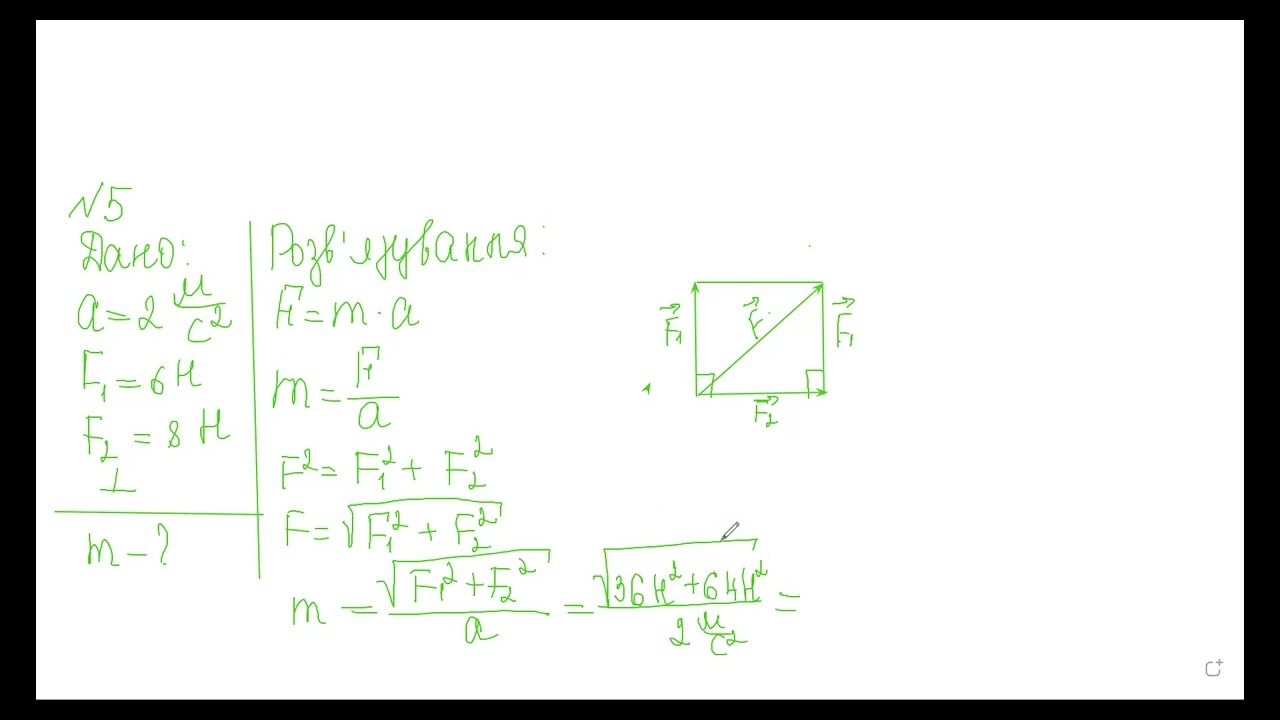 №5
Дано:
a = 2 м/с²
F₁ = 6 Н
F₂ = 8 Н
⊥
m - ?
Розв'язування:
F = m · a
m = F/a
F² = F₁² + F₂²
F = √(F₁² + F₂²)
m = √(F₁² + F₂²)/a = √(36 Н² + 64 Н²)/(2 м/с²) =
F⃗₁
F⃗
F⃗₁
F⃗₂